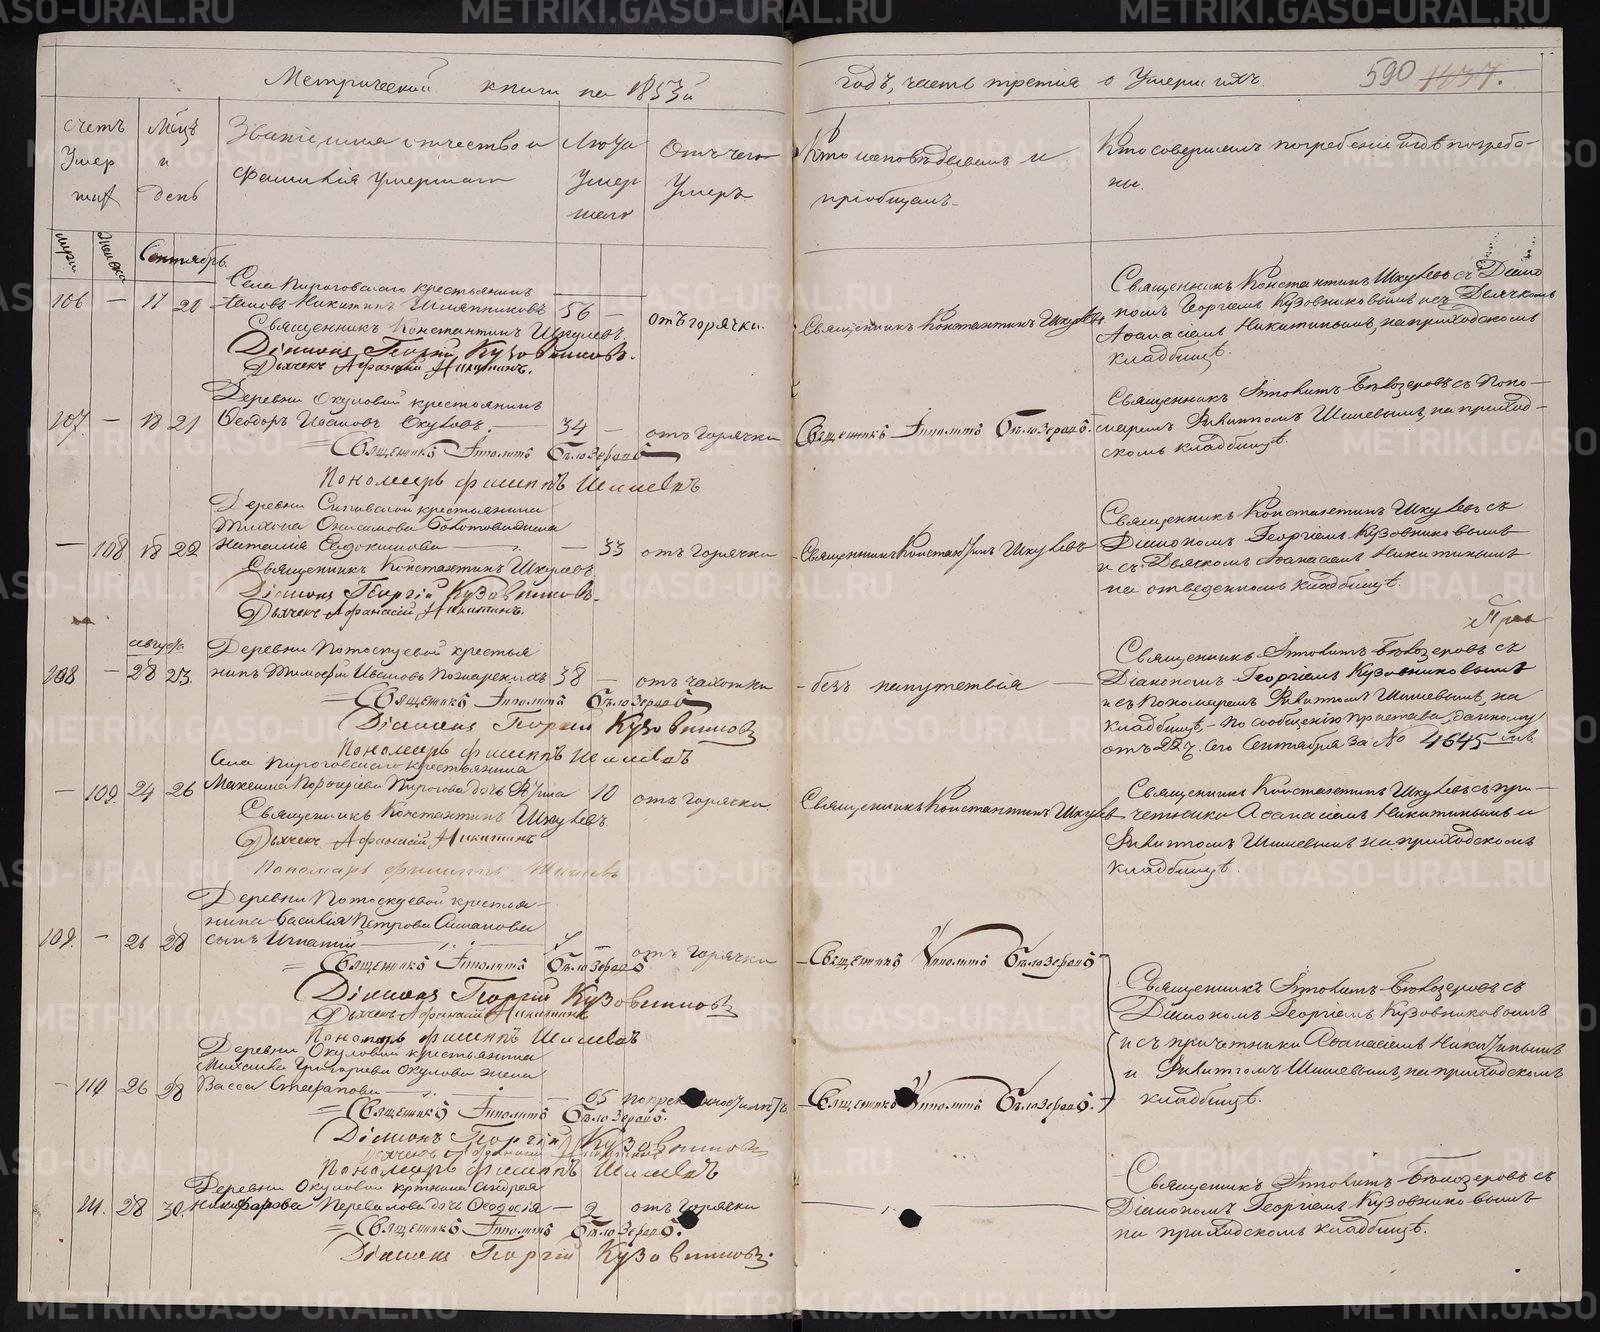 Метрической книги на 1853й
годъ, часть третія о Умершихъ.
590 1437.
счетъ Умер шихъ
Мѣцъ и день
Званіе, имя отчество и фамилія умершаго
Лѣта Умер шаго
Отъ чего Умеръ
Кто исповѣдывалъ и пріобщалъ
Кто совершалъ погребеніе и гдѣ погребе-
ны.
муж женска
Сентябрь
Села Пироговскаго крестьянинъ
106 — 11 20 Никитинъ 56 — отъ горячки.
Священникъ Константинъ Шкулевъ
Діаконъ Георгій Кузовниковъ.
Дьячекъ Афанасій Никитинъ.
Священникъ Константинъ Шкулевъ
Священникъ Константинъ Шкулевъ съ Діако
номъ Георгіемъ Кузовниковымъ и съ Дьячкомъ
Аѳанасіемъ Никитинымъ, на приходскомъ
кладбищѣ.
Деревни Окуловой крестьянинъ
107. — 18 21 Ѳеодоръ Ивановъ Окуловъ. 34 — отъ горячки
Священникъ Ипполитъ Бѣлозеровъ
Пономарь Филиппъ Шишевъ
Священникъ Ипполитъ Бѣлозеровъ.
Священникъ Ипполитъ Бѣлозеровъ съ Поно-
маремъ Филиппомъ Шишевымъ, на приход-
скомъ кладбищѣ.
Деревни крестьянина
Тихона Онисимова жена
— 108 18 22 Наталія Евдокимова — 33 отъ горячки
Священникъ Константинъ Шкулевъ
Діаконъ Георгій Кузовниковъ.
Дьячекъ Афанасій Никитинъ.
Священникъ Константинъ Шкулевъ
Священникъ Константинъ Шкулевъ съ
Діакономъ Георгіемъ Кузовниковымъ
и съ Дьячкомъ Аѳанасіемъ Никитинымъ
на отведенномъ кладбищѣ.
августа
Деревни Потоскуевой крестья
108 — 28 23. нинъ Тимофей Ивановъ 38 — отъ чахотки
Священникъ Ипполитъ Бѣлозеровъ
Діаконъ Георгій Кузовниковъ
Пономарь Филиппъ Шишевъ
— безъ напутствія —
Священникъ Ипполитъ Бѣлозеровъ съ
Діакономъ Георгіемъ Кузовниковымъ
и съ Пономаремъ Филиппомъ Шишевымъ, на
кладбищѣ, — по сообщенію пристава, данному
отъ 22 ч. сего Сентября за № 4645
Села Пироговскаго крестьянина
— 109. 24 26 Пирогова дочь 10 отъ горячки
Священникъ Константинъ Шкулевъ.
Дьячекъ Афанасій Никитинъ
Пономарь Филиппъ Шишевъ
Священникъ Константинъ Шкулев
Священникъ Константинъ Шкулевъ съ при-
четники Аѳанасіемъ Никитинымъ и
Филиппомъ Шишевымъ на приходскомъ
кладбищѣ.
Деревни Потоскуевой крестья-
нина Василія Петрова
109. — 26 28 сынъ Игнатій — отъ горячки
Священникъ Ипполитъ Бѣлозеровъ
Діаконъ Георгій Кузовниковъ
Дьячекъ Афанасій Никитинъ
Пономарь Филиппъ Шишевъ
Священникъ Ипполитъ Бѣлозеровъ
Священникъ Ипполитъ Бѣлозеровъ съ
Діакономъ Георгіемъ Кузовниковымъ
и съ причетники Аѳанасіемъ Никитинымъ
и Филиппомъ Шишевымъ, на приходскомъ
кладбищѣ.
Деревни Окуловой крестьянина
Михаила Григорьева Окулова жена
— 110 26 28 Васса Стефанова — 65
Священникъ Ипполитъ Бѣлозеровъ.
Діаконъ Георгій Кузовниковъ
Пономарь Филиппъ Шишевъ
Священникъ Ипполитъ Бѣлозеровъ.
Деревни Окуловой Андрея
111. 28 30. Никифорова Перевалова дочь Ѳеодосія — 2 отъ горячки
Священникъ Ипполитъ Бѣлозеровъ.
Діаконъ Георгій Кузовниковъ.
Священникъ Ипполитъ Бѣлозеровъ съ
Діакономъ Георгіемъ Кузовниковымъ
на приходскомъ кладбищѣ.
METRIKI.GASO-URAL.RU